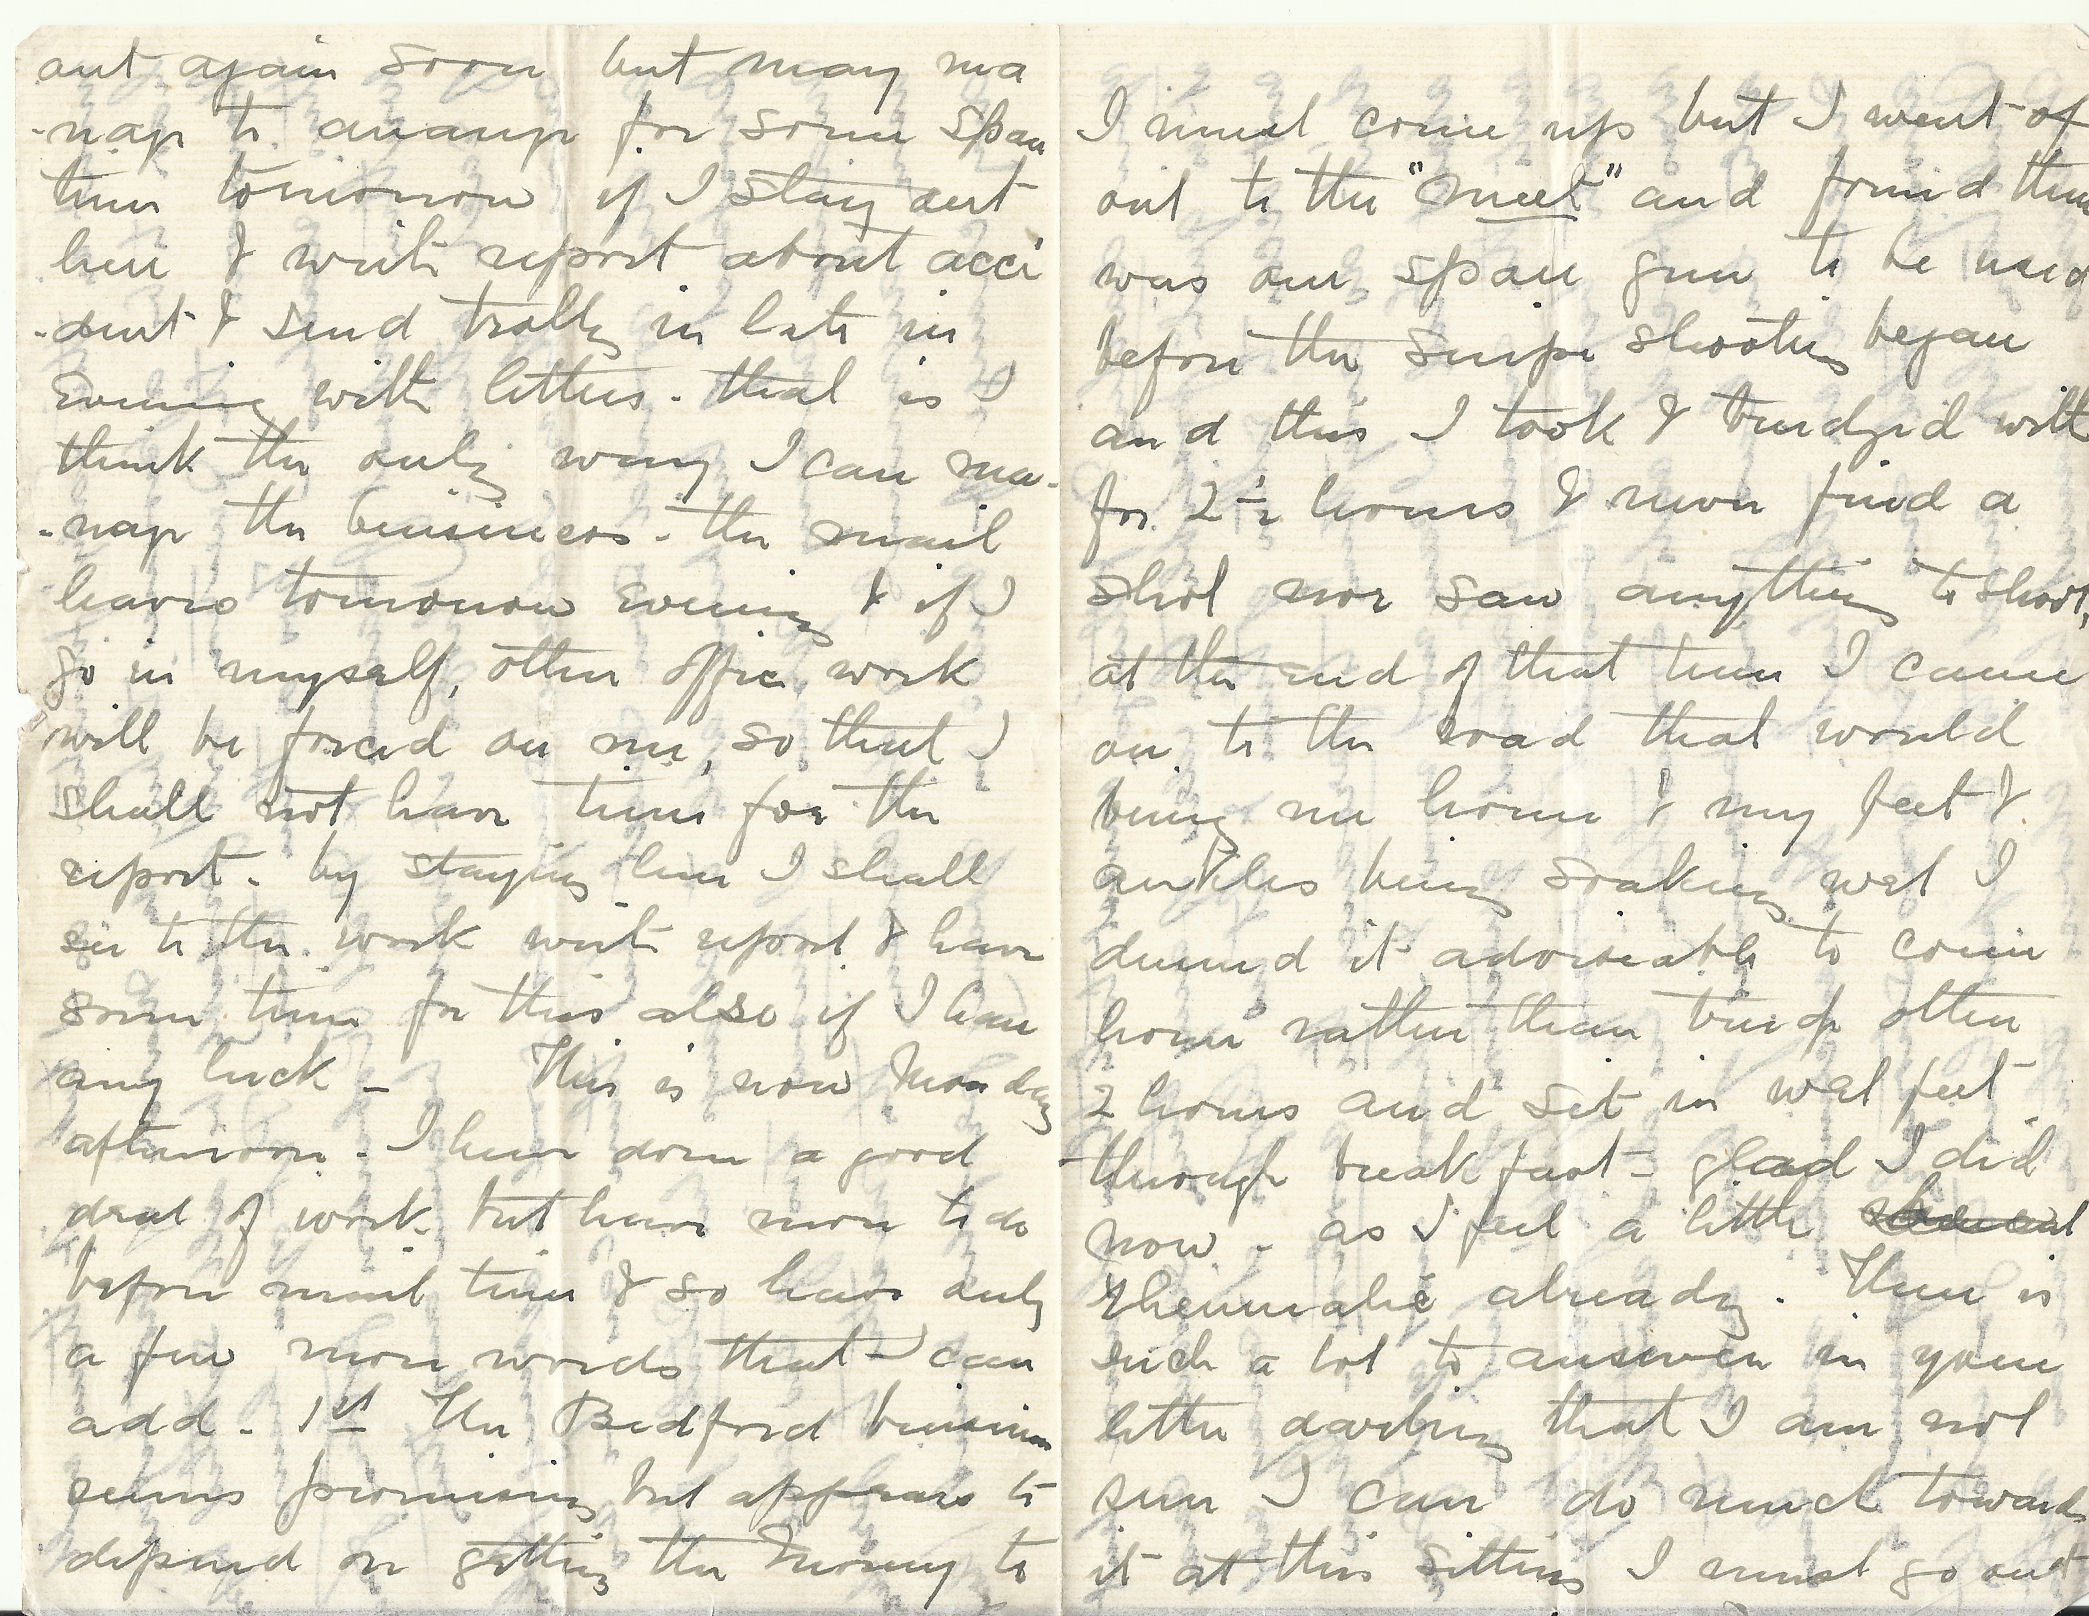 out again soon but may ma
-nage to arrange for some spare
time tomorrow if I stay out
here & write report about acci
-dent & send trolly in late in
evening with letters. that is I
think the only way I can ma-
-nage the business. the mail
leaves tomorrow evening & if I
go in myself, other office work
will be forced on me, so that I
shall not have time for the
report. by staying here I shall
see to the work write report & have
some time for this also if I have
any luck - This is now Monday
afternoon. I have done a good
deal of work but have more to do
before mail time & so have only
a few more words that I can
add. 1st The Bedford business
seems promising but appears to
depend on getting the money to
I must come up but I went off
out to the "meet" and found there
was one spare gun to be used
before the snipe shooting began
and this I took & trudged with
for 2 1/2 hours & never fired a
shot nor saw anything to shoot,
at the end of that time I came
on to the road that would
bring me home & my feet &
ankles being soaking wet I
deemed it adviseable to come
home rather than trudge other
2 hours and sit in wet feet
through breakfast - glad I did
now - as I feel a little
rheumatic already. There is
such a lot to answer in your
letter darling that I am not
sure I can do much towards
it at this sitting I must go out